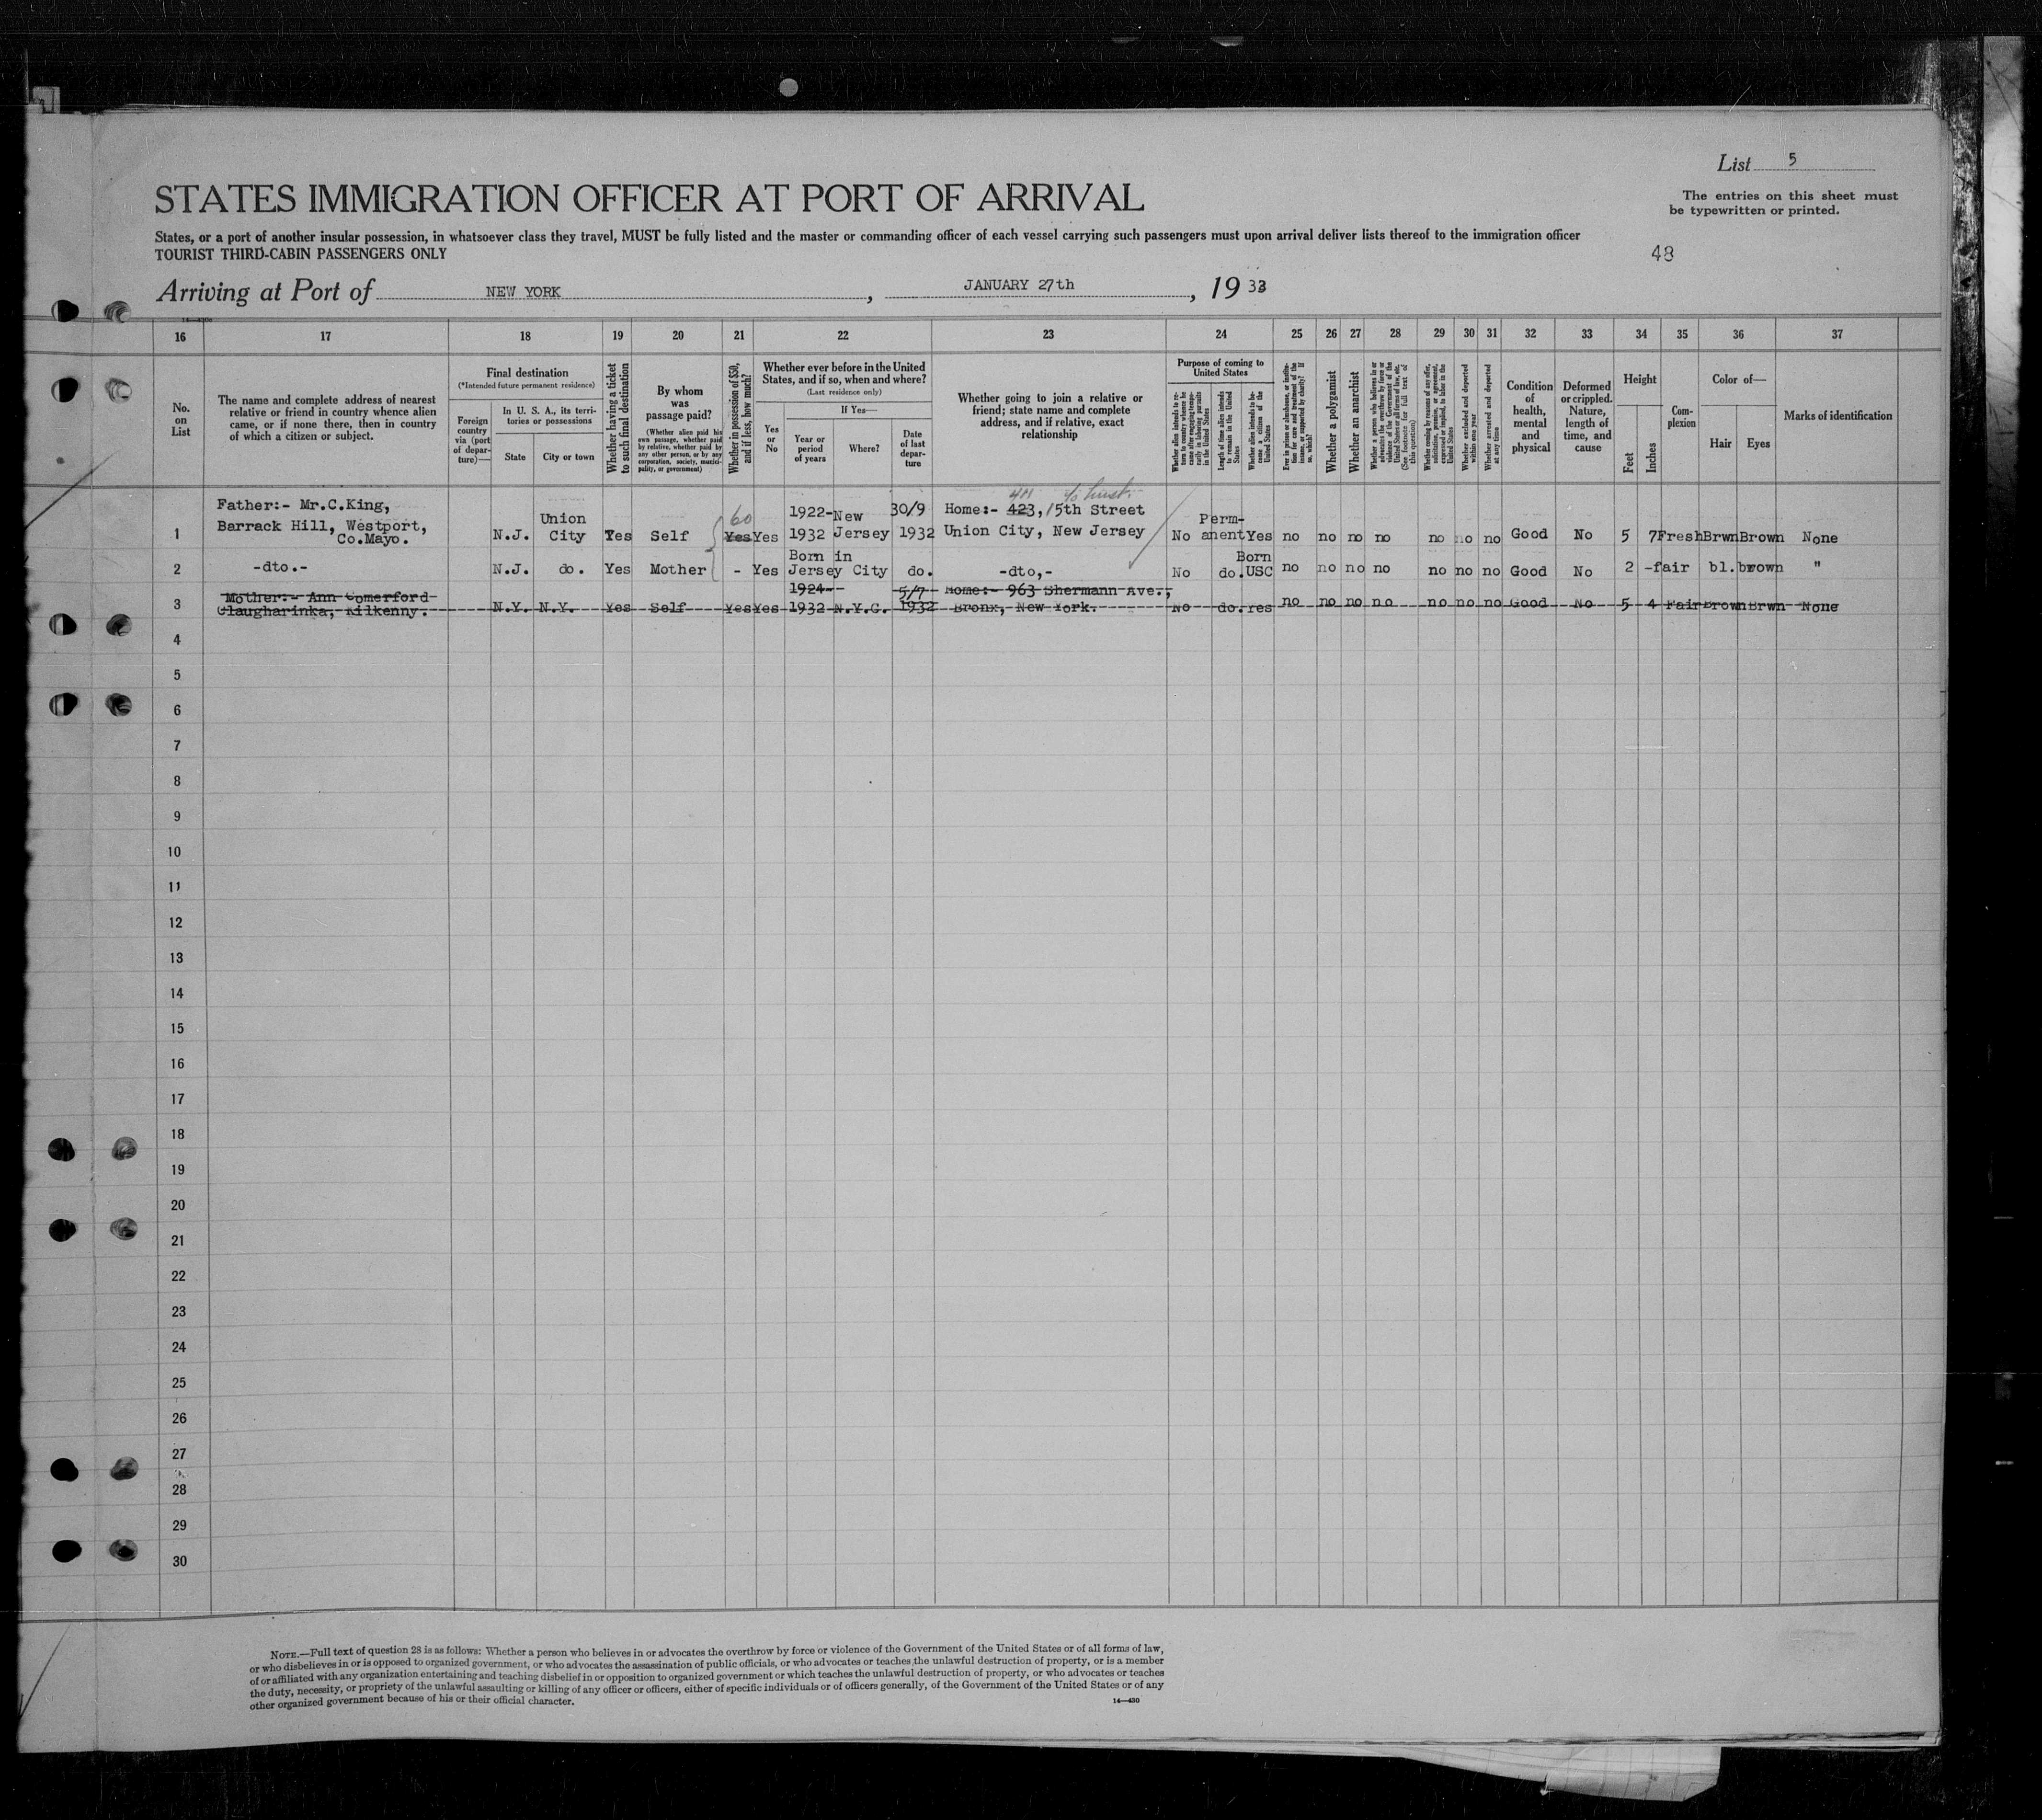 List 5
STATES IMMIGRATION OFFICER AT PORT OF ARRIVAL
The entries on this sheet must
be typewritten or printed.
States, or a port of another insular possession, in whatsoever class they travel, MUST be fully listed and the master or commanding officer of each vessel carrying such passengers must upon arrival deliver lists thereof to the immigration officer
TOURIST THIRD-CABIN PASSENGERS ONLY
48
Arriving at Port of NEW YORK, JANUARY 27th, 1933
16 17 18 19 20 21 22 23 24 25 26 27 28 29 30 31 32 33 34 35 36 37
No. on List
The name and complete address of nearest
relative or friend in country whence alien
came, or if none there, then in country
of which a citizen or subject.
Final destination
(*Intended future permanent residence)
Foreign country via (port of departure)—
In U. S. A., its territories or possessions
State
City or town
Whether having a ticket to such final destination
By whom was passage paid?
(Whether alien paid his own passage, whether paid by relative, whether paid by any other person, or by any corporation, society, municipality, or government)
Whether in possession of $50, and if less, how much?
Whether ever before in the United
States, and if so, when and where?
(Last residence only)
Yes or No
If Yes—
Year or period of years
Where?
Date of last departure
Whether going to join a relative or
friend; state name and complete
address, and if relative, exact
relationship
Purpose of coming to United States
Whether alien intends to return to country whence he came after engaging temporarily in laboring pursuits in the United States
Length of time alien intends to remain in the United States
Whether alien intends to become a citizen of the United States
Ever in prison or almshouse, or institution for care and treatment of the insane, or supported by charity? If so, which?
Whether a polygamist
Whether an anarchist
Whether a person who believes in or advocates the overthrow by force or violence of the Government of the United States or all forms of law, etc. (See footnote for full text of this question)
Whether coming by reason of any offer, solicitation, promise, or agreement, expressed or implied, to labor in the United States
Whether excluded and deported within one year
Whether arrested and deported at any time
Condition of health, mental and physical
Deformed or crippled. Nature, length of time, and cause
Height
Feet
Inches
Complexion
Color of—
Hair
Eyes
Marks of identification
411 To husb.
Father:- Mr.C.King,
Barrack Hill, Westport,
Co.Mayo.
1 N.J. Union City Yes Self 60 Yes Yes 1922-1932 New Jersey 30/9 1932 Home:- 423, 15th Street Union City, New Jersey No Permanent Yes no no no no no no no Good No 5 7 Fresh Brwn Brown None
2 -dto.- N.J. do. Yes Mother - Yes Born in Jersey City do. -dto,- No do. Born USC no no no no no no no Good No 2 - fair bl. brown "
3 Mother:- Ann Comerford Claugharinka, Kilkenny. N.Y. N.Y. Yes Self Yes Yes 1924-1932 N.Y.C. 5/7 1932 Home:- 963 Shermann Ave., Bronx, New York. No do. Yes no no no no no no no Good No 5 4 Fair Brown Brwn None
4
5
6
7
8
9
10
11
12
13
14
15
16
17
18
19
20
21
22
23
24
25
26
27
28
29
30
NOTE.—Full text of question 28 is as follows: Whether a person who believes in or advocates the overthrow by force or violence of the Government of the United States or of all forms of law,
or who disbelieves in or is opposed to organized government, or who advocates the assassination of public officials, or who advocates or teaches the unlawful destruction of property, or is a member
of or affiliated with any organization entertaining and teaching disbelief in or opposition to organized government or which teaches the unlawful destruction of property, or who advocates or teaches
the duty, necessity, or propriety of the unlawful assaulting or killing of any officer or officers, either of specific individuals or of officers generally, of the Government of the United States or of any
other organized government because of his or their official character.
14—430